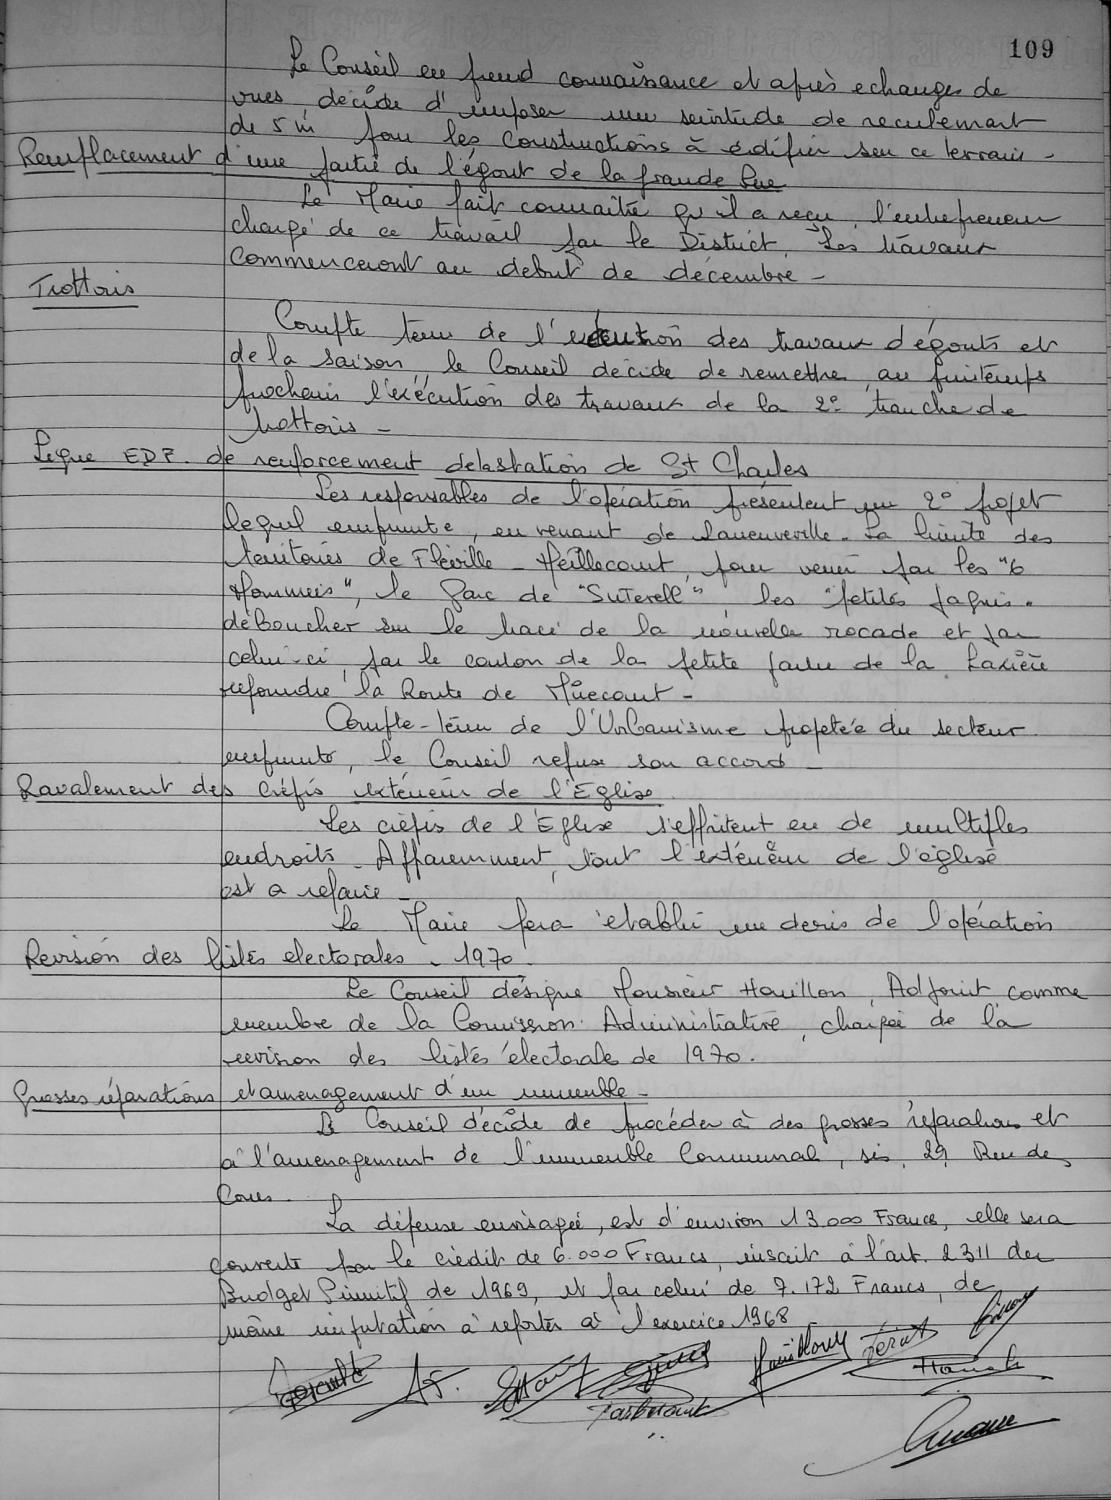 109
Le Conseil en prend connaissance et après echanges de
vues, décide d'imposer une servitude de reculement
de 5 m pour les constructions à édifier sur ce terrain -
Remplacement d'une partie de l'égout de la Grande Rue
Le Maire fait connaître qu'il a reçu l'entrepreneur
chargé de ce travail par le District. Les travaux
Commenceront au début de décembre -
Trottoirs
Compte tenu de l'exécution des travaux d'égouts et
de la saison, le Conseil décide de remettre au printemps
prochain l'exécution des travaux de la 2e tranche de
trottoirs -
Ligne EDF. de renforcement de la station de St Charles
Les responsables de l'opération présentent un 2° projet
lequel emprunte, en venant de Laneuveville - La limite des
territoires de Fléville - Heillecourt, pour venir par les "6
Hommées", le Parc de "Suterell", les "petites
déboucher sur le tracé de la nouvelle rocade et par
celui-ci, par le de la petite partie de la
rejoindre la Route de
Compte-tenu de l'Urbanisme projetée du secteur
emprunté, le Conseil refuse son accord -
Ravalement des Crépis extérieur de l'Eglise
Les crépis de l'Eglise s'effritent en de multiples
endroits. Apparemment, tout l'extérieur de l'église
est a refaire -
Le Maire fera établir un devis de l'opération
Revision des listes electorales - 1970.
Le Conseil désigne Monsieur Houillon, Adjoint, comme
membre de la Commission Administrative, chargée de la
revision des listes électorale de 1970.
Grosses réparations et aménagement d'un immeuble -
Le Conseil décide de procéder à des grosses réparations et
à l'aménagement de l'immeuble Communal, sis, 29, Rue de
Cours.
La dépense envisagée, est d'environ 13.000 Francs, elle sera
couverte par le crédit de 6.000 Francs, inscrit à l'art. 2311 du
Budget Primitif de 1969, et par celui de 7.172 Francs, de
même imputation à reporter à l'exercice 1968